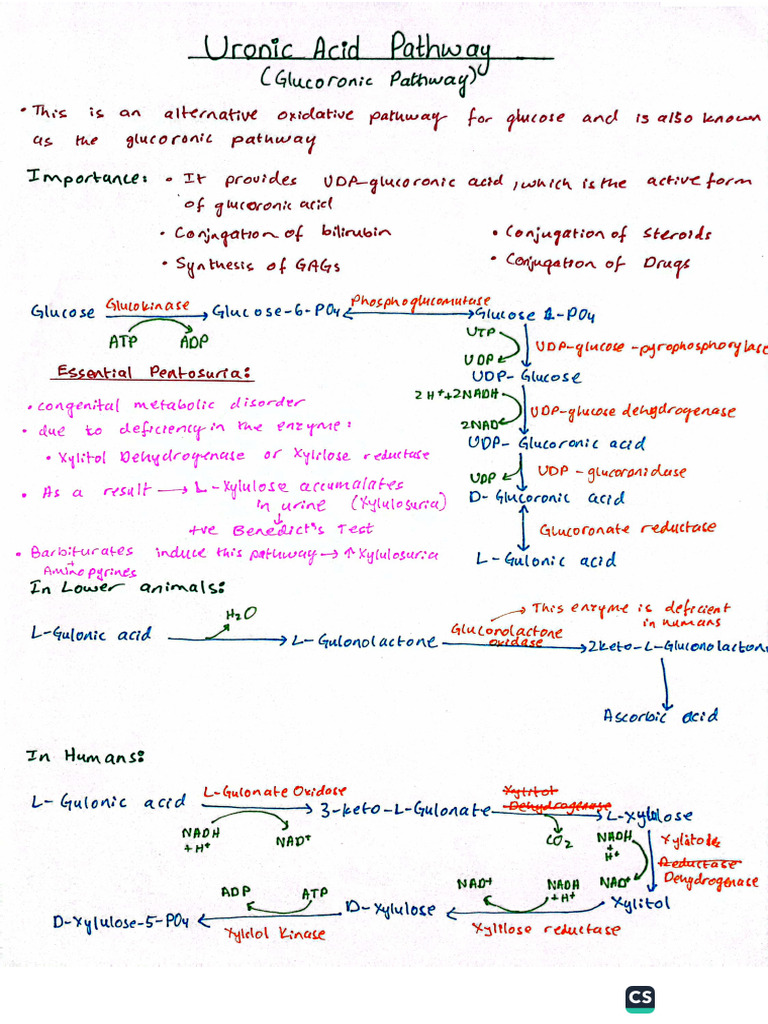 Uronic Acid Pathway
(Glucoronic Pathway)
• This is an alternative oxidative pathway for glucose and is also known
as the glucoronic pathway
Importance: • It provides UDA-glucoronic acid, which is the active form
of glucoronic acid
• Conjugation of bilirubin • Conjugation of Steroids
• Synthesis of GAGs • Conjugation of Drugs
Glucose Glucokinase Glucose-6-PO4 Phosphoglucomutase Glucose 1-PO4
ATP ADP
UTP
UDP
UDP-glucose-pyrophosphorylase
UDP-Glucose
Essential Pentosuria:
• congenital metabolic disorder
• due to deficiency in the enzyme:
• Xylitol Dehydrogenase or Xylilose reductase
• As a result → L-Xylulose accumalates
in urine (Xylulosuria)
+ve Benedict's Test
• Barbiturates induce this pathway → ↑ Xylulosuria
+
Aminopyrines
2H+ + 2NADH
2NAD
UDP-glucose dehydrogenase
UDP-Glucoronic acid
UDP
UDP-glucoronidase
D-Glucoronic acid
Glucoronate reductase
L-Gulonic acid
In Lower animals:
L-Gulonic acid H2O L-Gulonolactone Gluconolactone
oxidase 2keto-L-Glulonolacton
→ This enzyme is deficient
in humans
Ascorbic acid
In Humans:
L-Gulonic acid L-Gulonate Oxidase 3-keto-L-Gulonate Xylitol
Dehydrogenase L-Xylulose
NADH
+H+
NAD+
CO2
NADH
+
H+
NAD+
Xylitode
Reductase
Dehydrogenase
Xylitol
NAD+ NADH
+H+
Xylilose reductase
D-Xylulose
ADP ATP
Xylelol Kinase
D-Xylulose-5-PO4
CS